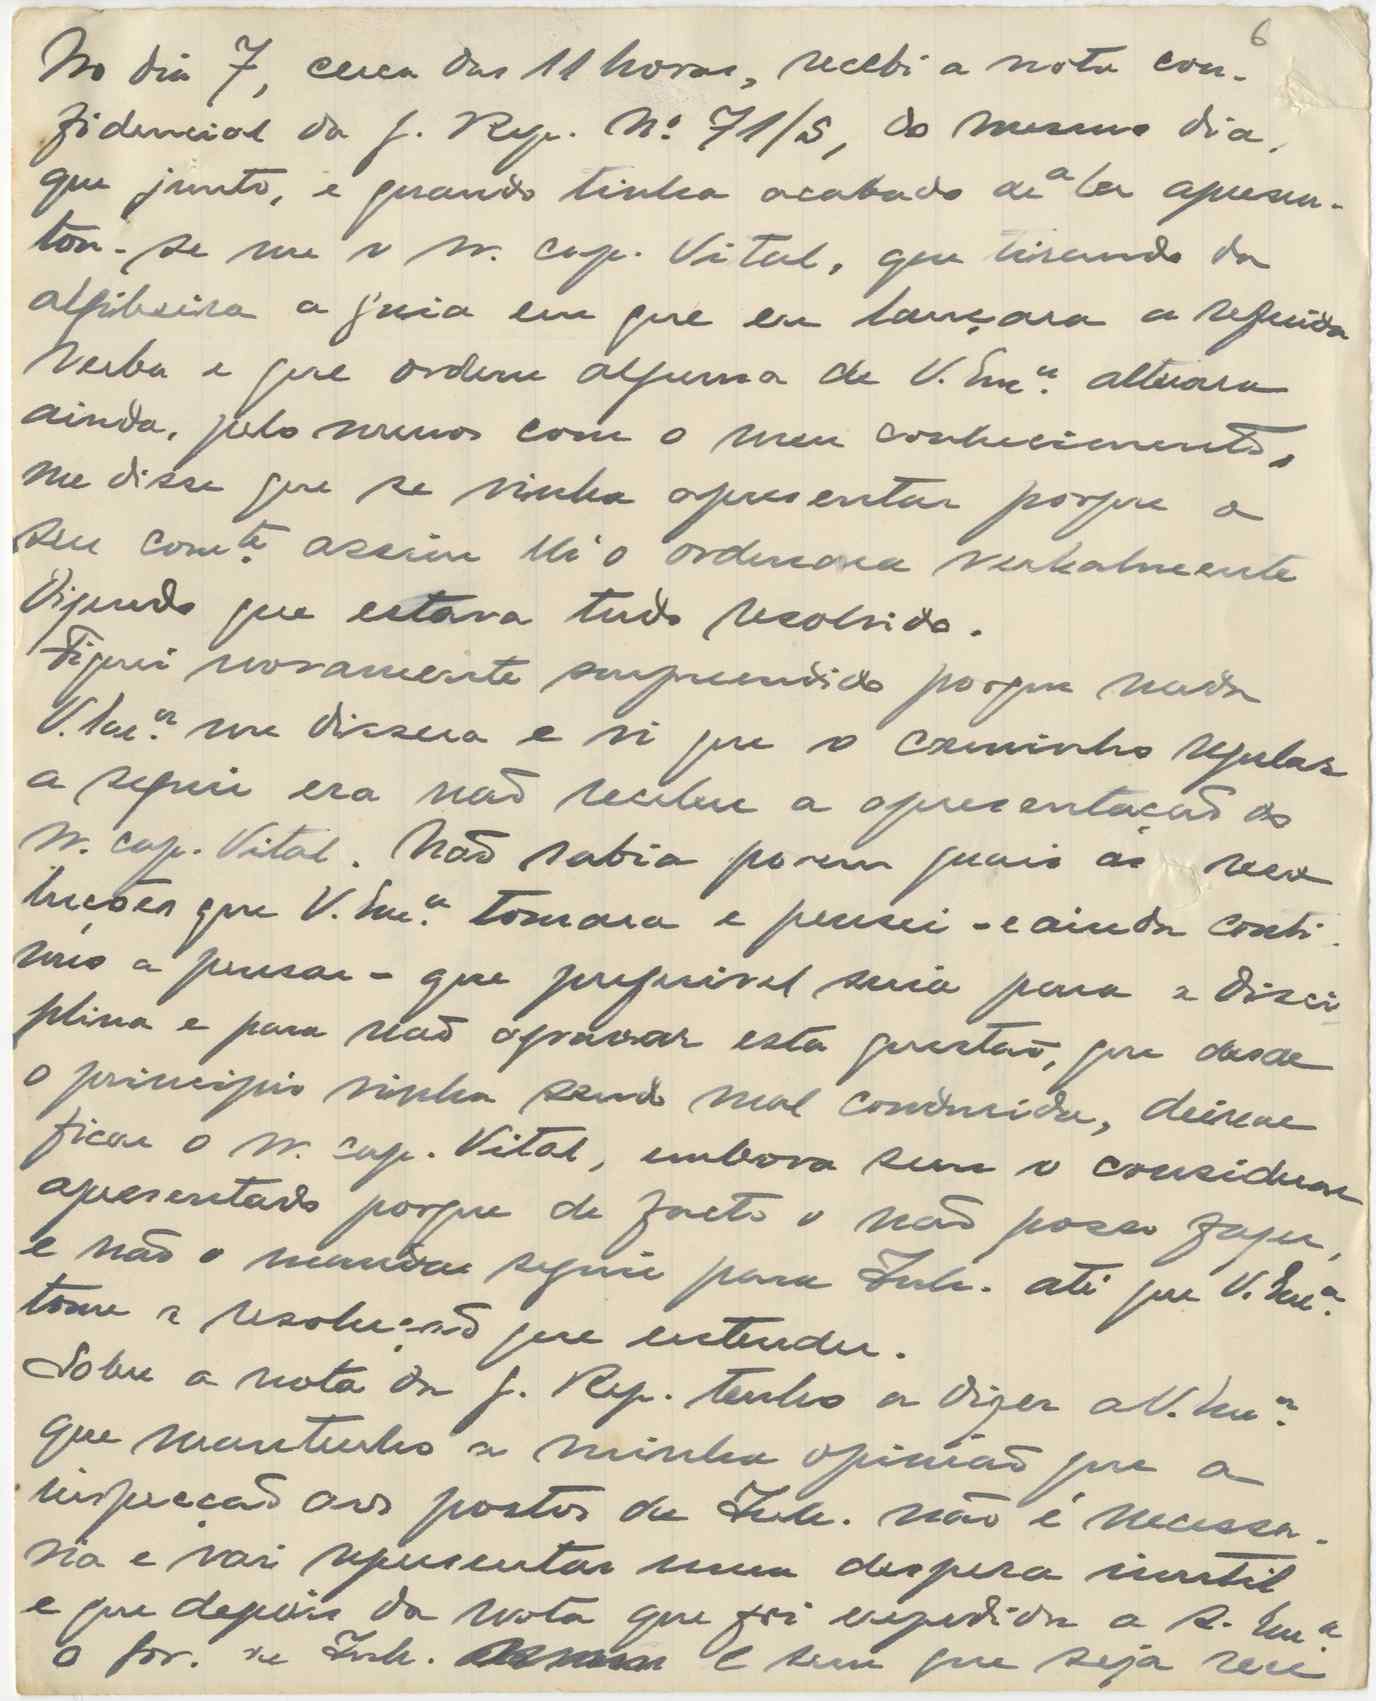 6
No dia 7, cerca das 11 horas, recebi a nota con-
fidencial da f. Rep. Nº 71/S, do mesmo dia,
que junto, e quando tinha acabado de a ler apresen-
tou-se me o sr. cap. Vital, que tirando da
algibeira a guia em que eu lançara a referida
verba e que ordem alguma de V. Exª. alterara
ainda, pelo menos com o meu conhecimento,
me disse que se vinha apresentar porque o
seu comte. assim lh'o ordenara verbalmente
dizendo que estava tudo resolvido.
Fiquei novamente surpreendido porque nada
V. Exª. me dissera e vi que o caminho regular
a seguir era não receber a apresentação do
sr. cap. Vital. Não sabia porem quais as reso
luções que V. Exª. tomara e pensei - e ainda conti-
nuo a pensar - que preferivel seria para a disci-
plina e para não agravar esta questão, que desde
o principio vinha sendo mal conduzida, deixar
ficar o sr. cap. Vital, embora sem o considerar
apresentado porque de facto o não posso fazer,
e não o mandar seguir para Inh. até que V. Exª.
tome a resolução que entender.
Sobre a nota da f. Rep. tenho a dizer a V. Exª.
que mantenho a minha opinião que a
inspecção aos postos de Inh. não é necessa-
ria e vai representar uma despesa inutil
e que depois da nota que foi expedida a S. Exª.
o Gov. de Inh. e sem que seja rece